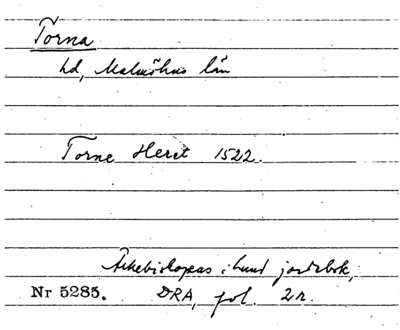 Torna
hd, Malmöhus län
Torne Heret 1522.
Ärkebiskopens i Lund jordebok,
Nr 5285. DRA, fol. 2r.